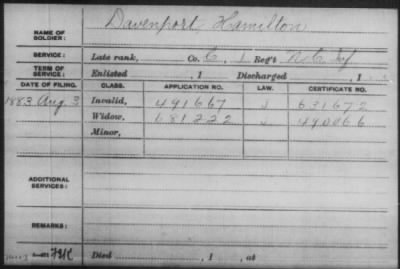 NAME OF SOLDIER: Davenport, Hamilton
SERVICE: Late rank, Co. C, 1 Reg't N.C. Inf
TERM OF SERVICE: Enlisted , 1 Discharged , 1
DATE OF FILING. CLASS. APPLICATION NO. LAW. CERTIFICATE NO.
1883 Aug. 3 Invalid, 491667 631672
Widow, 681222 490066
Minor,
ADDITIONAL SERVICES:
REMARKS:
Died , 1 , at